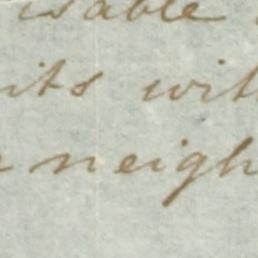 isable
its wit
neigh